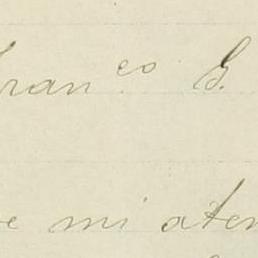 ran co G.
e mi aten